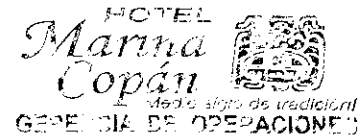 HOTEL
Marina
Copán
Medio siglo de tradición!
GERENCIA DE OPERACIONES